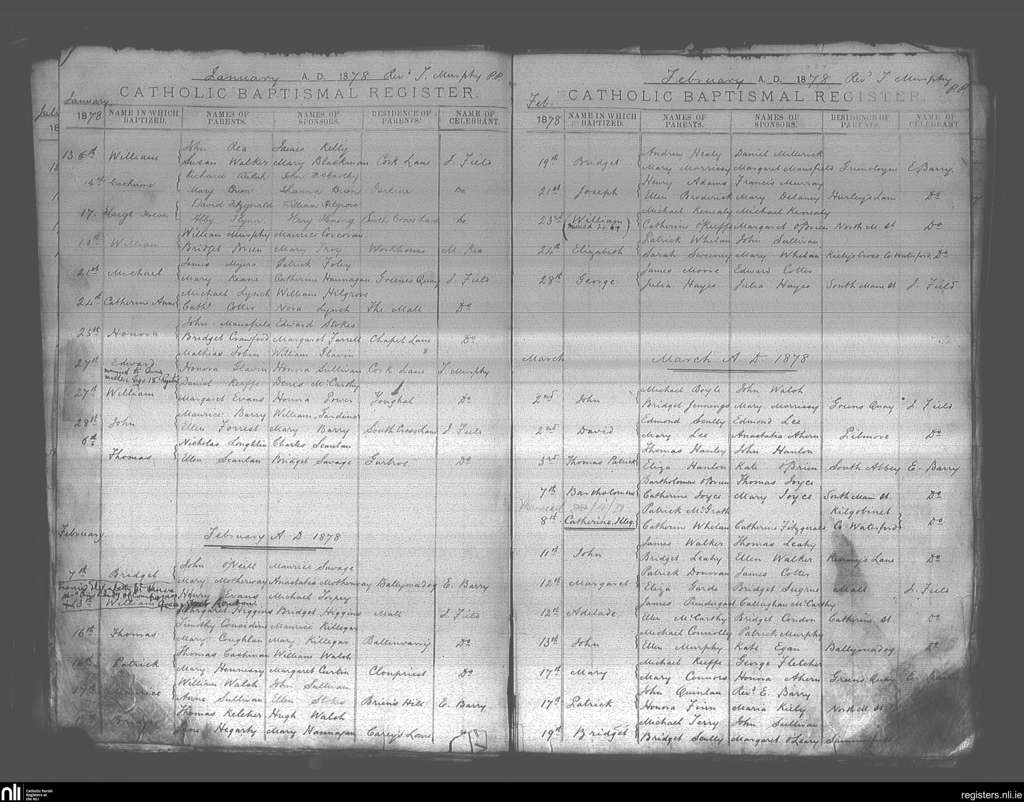 January A.D. 1878 Revd T. Murphy P.P.
CATHOLIC BAPTISMAL REGISTER.
January
1878 NAME IN WHICH BAPTIZED. NAMES OF PARENTS. NAMES OF SPONSORS. RESIDENCE OF PARENTS. NAME OF CELEBRANT.
John Rea James Kelly
13 6th William Susan Walker Mary Blackman Cork Lane J. Field
Richard
14th Mary Do
David Fitzgerald William Kilgrow
17. Flynn Mary South Cross Lane Do
William Murphy Maurice Corcoran
18th William Bridget Brien Mary Troy Workhouse M. Rea
James Myers Patrick Foley
21st Michael Mary Keane Catherine Hannagan Greenes Quay J. Field
Michael Lynch William Hilgrow
24th Catherine Anne Cath. Cotter Nora Lynch The Mall Do
John Mansfield Edward Stokes
25th Honora Bridget Crawford Margaret Farrell Chapel Lane Do
Mathias Tobin William Slavin
27th Edward Honora Slavin Honora Sullivan Cork Lane T. Murphy
Daniel Keeffe Denis McCarthy
27th William Margaret Evans Honora Power Youghal Do
Maurice Barry William Gardiner
28th John Ellen Forrest Mary Barry South Cross Lane J. Field
6th Nicholas Loughlin Charles Scanlan
Thomas Ellen Scanlan Bridget Savage Do
February
February A D 1878
John O'Neill Maurice Savage
7th Bridget Mary Motherway Anastatia Motherway Ballymadog E. Barry
Henry Evans Michael Torey
13th William Margaret Higgins Bridget Higgins Mall J. Field
Timothy Considine Maurice Killigan
16th Thomas Mary Coughlan Mary Killigan Do
Thomas Cashman William Walsh
16th Patrick Mary Hennessy Margaret Curtin Clonpriest Do
William Walsh John Sullivan
17th Maurice Anne Sullivan Ellen Stokes Briens Hill E. Barry
Thomas Kelcher Hugh Walsh
Bridget Hegarty Mary Hannagan Careys Lane
February A.D. 1878 Revd T. Murphy P.P.
CATHOLIC BAPTISMAL REGISTER.
Feb.
1878 NAME IN WHICH BAPTIZED. NAMES OF PARENTS. NAMES OF SPONSORS. RESIDENCE OF PARENTS. NAME OF CELEBRANT
Andrew Healy Daniel Millerick
19th Bridget Mary Morrissy Margaret Mansfield E. Barry.
Henry Adams Francis Murray
21st Joseph Ellen Broderick Mary Delaney Hurley's Lane Do
Michael Kenealy Michael Kenealy
23rd William Catherine O'Keeffe Margaret O'Brien North M. St Do
Patrick Whelan John Sullivan
24th Elizabeth Sarah Sweeney Mary Whelan Co Waterford Do
James Moore Edward Cotter
28th George Julia Hayes Julia Hayes South Main St J. Field
March
March A D 1878
Michael Boyle John Walsh
2nd John Bridget Jennings Mary Morrissy Greens Quay J. Field
Edmond Scully Edmond Lee
2nd David Mary Lee Anastatia Ahern Pilmore Do
Thomas Hanley John Hanlon
3rd Thomas Patrick Eliza Hanlon Kate O'Brien South Abbey E. Barry
Bartholomew O'Brien Thomas Joyce
7th Bartholomew Catherine Joyce Mary Joyce South Main St Do
Patrick McGrath Kilgobinet
8th Catherine Catherine Whelan Catherine Fitzgerald Co Waterford Do
James Walker Thomas Leahy
11th John Bridget Leahy Ellen Walker Kenny's Lane Do
Patrick Donovan James Cotter
12th Margaret Eliza Garde Bridget Sugrue Mall J. Field
James Prendergast Callaghan McCarthy
12th Adelaide Ellen McCarthy Bridget Condon Catherine St Do
Michael Connolly Patrick Murphy
13th John Ellen Murphy Kate Egan Ballymadog Do
Michael Keeffe George Fletcher
17th Mary Mary Connors Honora Ahern Greens Quay
John Quinlan Revd E. Barry
17th Patrick Honora Finn Maria Kiely North M. St
Michael Terry John Sullivan
19th Bridget Bridget Scully Margaret O'Leary
nli Catholic Parish Registers at the NLI
registers.nli.ie